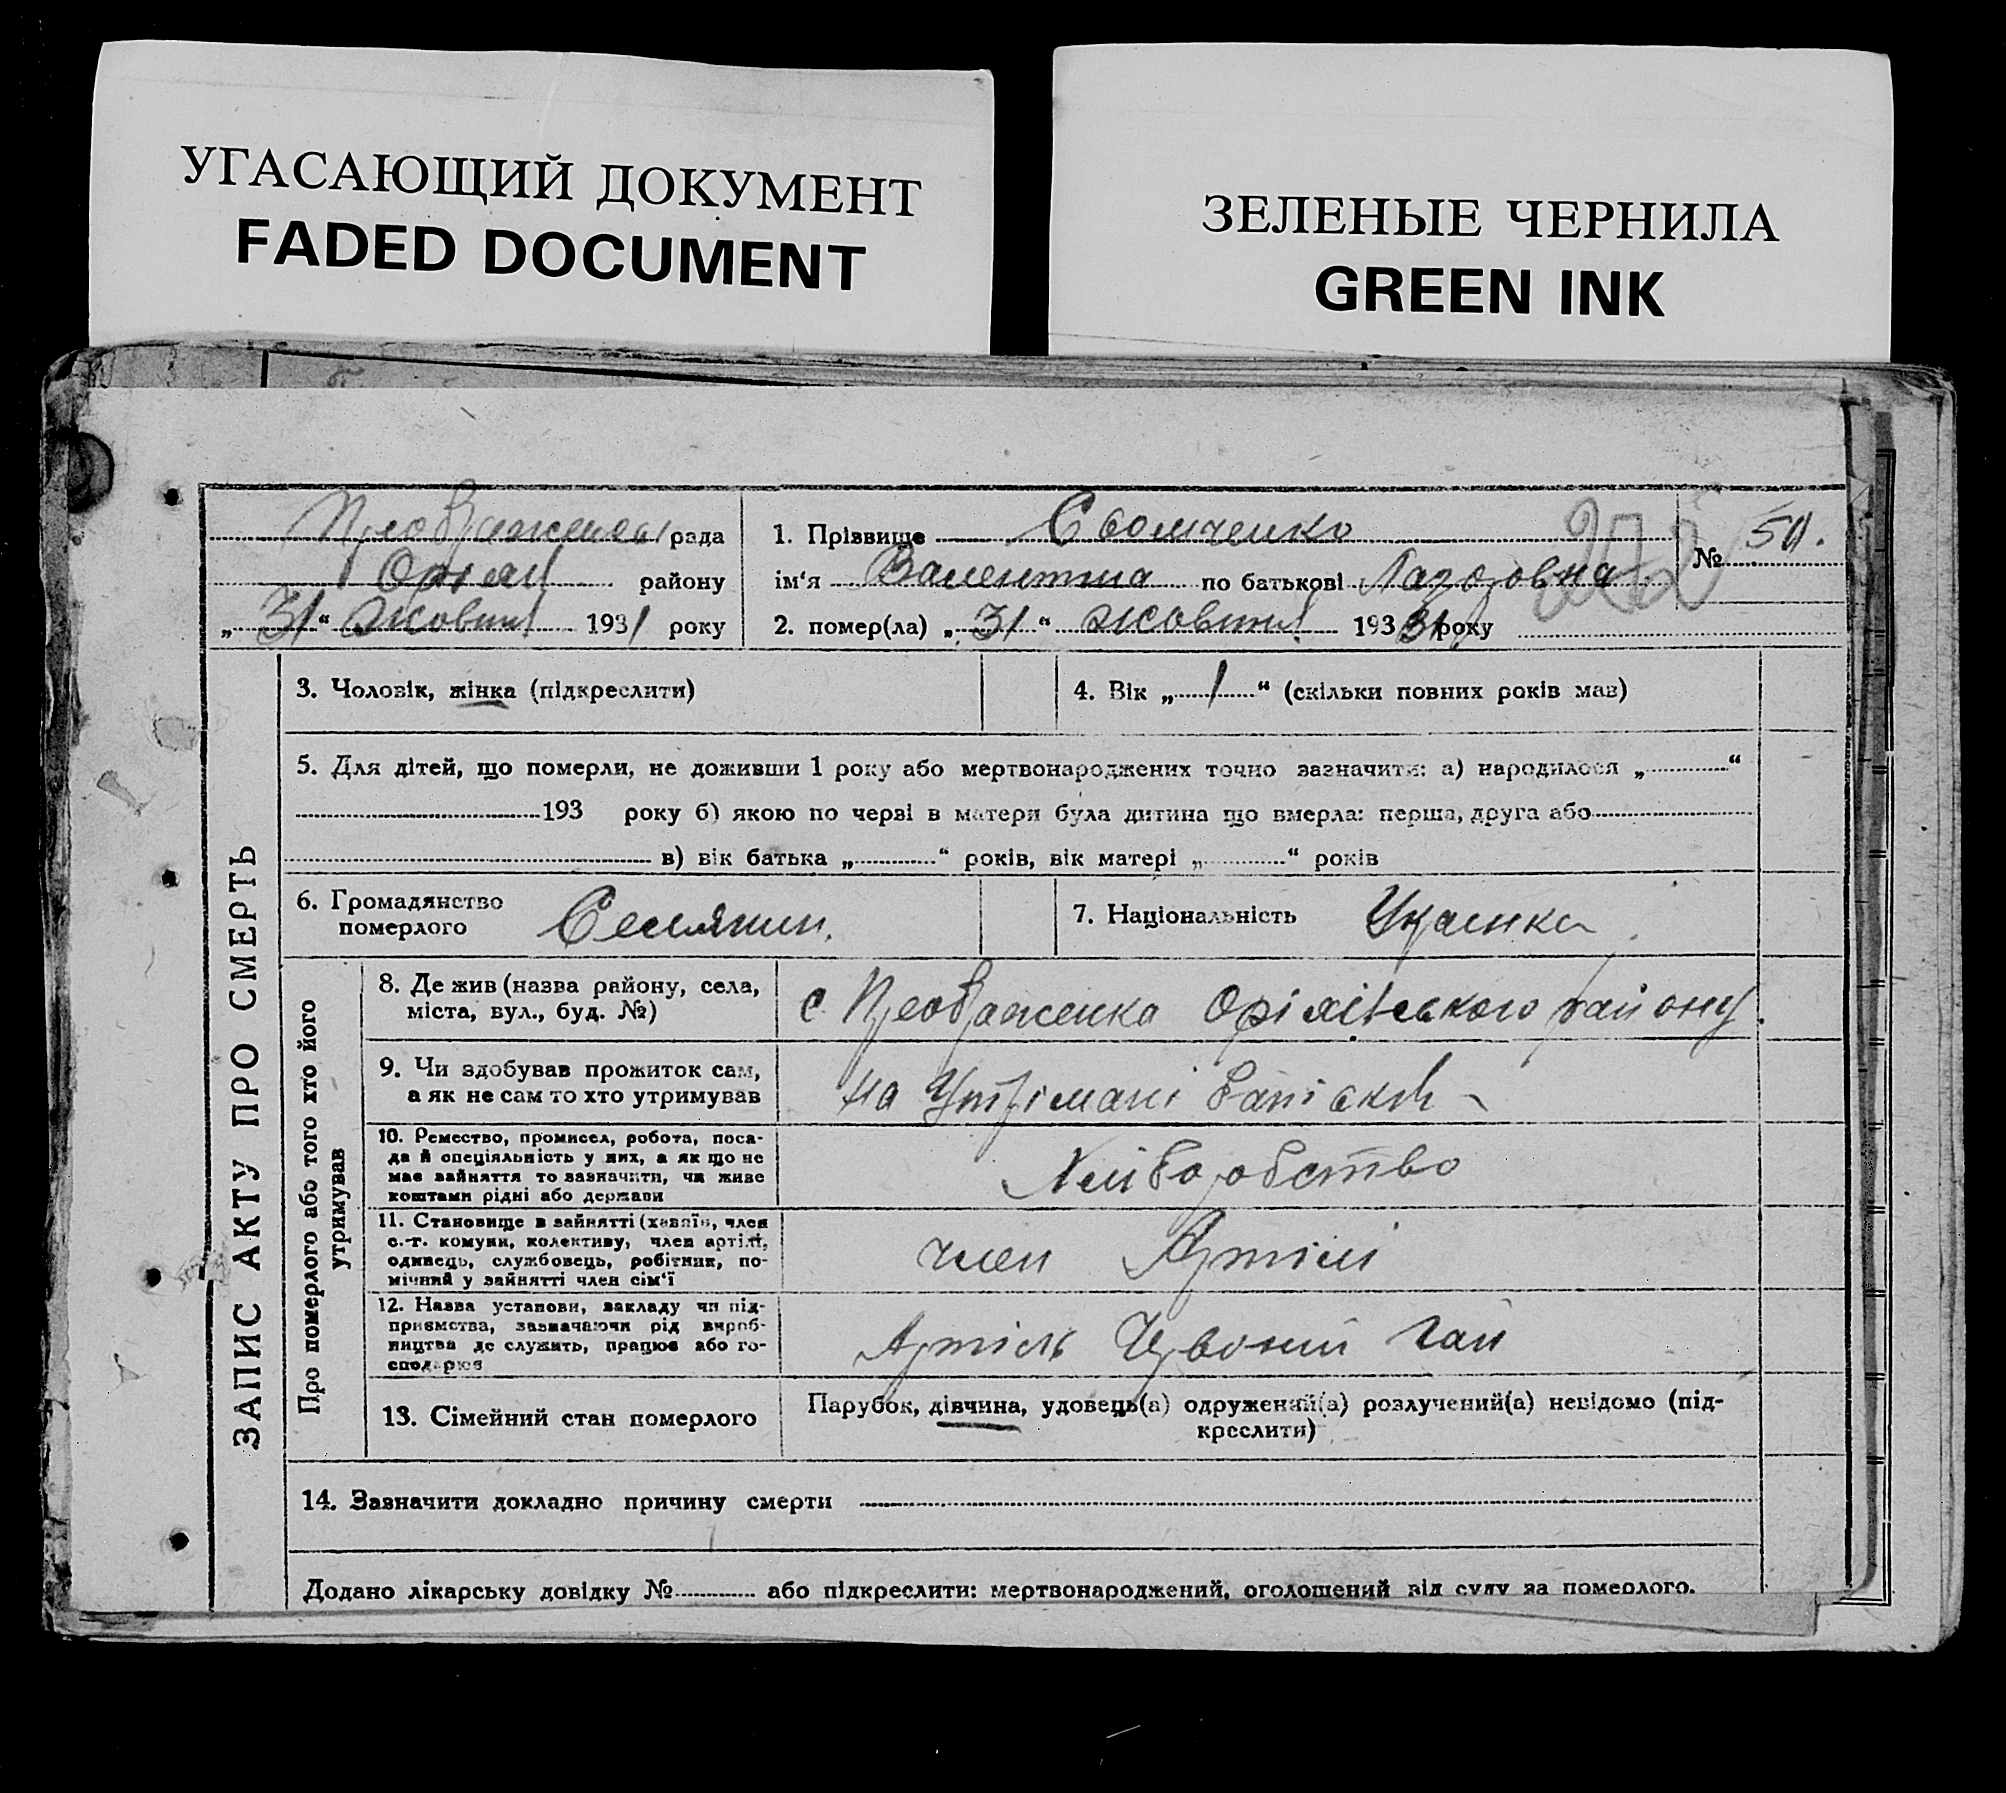 УГАСАЮЩИЙ ДОКУМЕНТ
FADED DOCUMENT
ЗЕЛЕНЫЕ ЧЕРНИЛА
GREEN INK
рада
району
„31“ жовтня 1931 року
1. Прізвище
ім‘я Валентина по батькові
2. помер(ла) „31“ жовтня 193 31 року
№ 50.
ЗАПИС АКТУ ПРО СМЕРТЬ
3. Чоловік, жінка (підкреслити)
4. Вік „1“ (скільки повних років мав)
5. Для дітей, що померли, не доживши 1 року або мертвонароджених точно зазначити: а) народилося „ “
193 року б) якою по черві в матери була дитина що вмерла: перша, друга або
в) вік батька „ “ років, вік матері „ “ років
6. Громадянство
померлого
Селянин.
7. Національність
Українка
Про померлого або того хто його
утримував
8. Де жив (назва району, села,
міста, вул., буд. №)
с Преображенка району.
9. Чи здобував прожиток сам,
а як не сам то хто утримував
на Утрімані батьків
10. Ремество, промисел, робота, поса-
да й спеціяльність у них, а як що не
має зайняття то зазначити, чи живе
коштами рідні або держави
Хліборобство
11. Становище в зайнятті (хазяїн, член
с.-г. комуни, колективу, член артілі,
одинець, службовець, робітник, по-
мічний у зайнятті член сім‘ї
член Артілі
12. Назва установи, закладу чи під-
приємства, зазначаючи рід вироб-
ництва де служить, працює або го-
сподарює
Артіль Червоний Гай
13. Сімейний стан померлого
Парубок, дівчина, удовець(а) одружений(а) розлучений(а) невідомо (під-
креслити)
14. Зазначити докладно причину смерти
Додано лікарську довідку № або підкреслити: мертвонароджений, оголошений від суду за померлого.